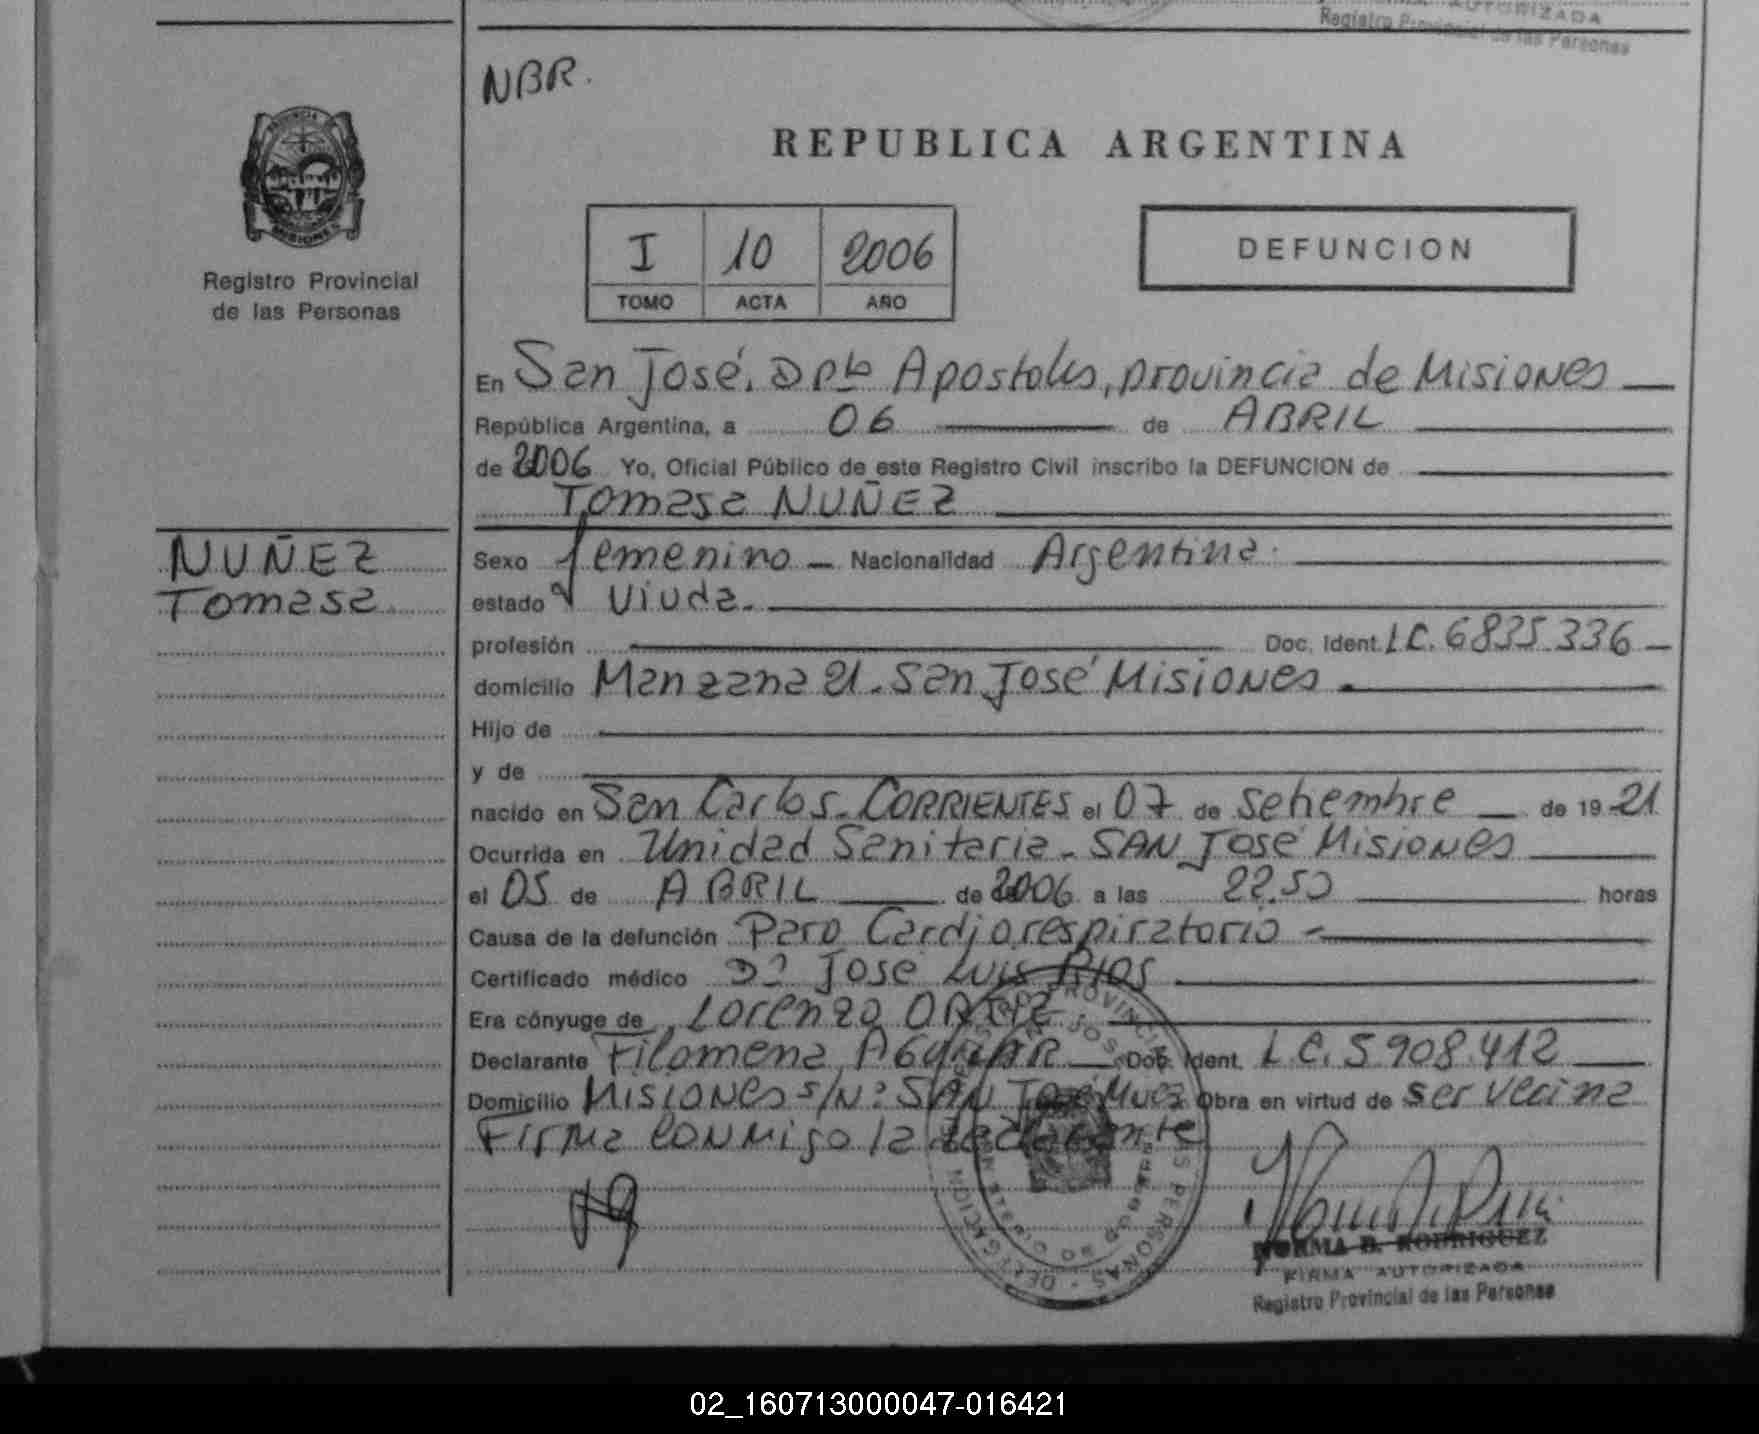 AUTORIZADA
Registro Provincial de las Personas
NBR.
REPUBLICA ARGENTINA
PROVINCIA DE
MISIONES
Registro Provincial
de las Personas
I 10 2006
TOMO ACTA AÑO
DEFUNCION
En San José. Dpto Apostoles, provincia de Misiones
República Argentina, a 06 de ABRIL
de 2006 Yo, Oficial Público de este Registro Civil inscribo la DEFUNCION de
Tomasa NUÑEZ
NUÑEZ
Tomasa
Sexo femenino Nacionalidad Argentina.
estado Viuda.
profesión Doc. Ident. LC. 6835.336
domicilio Manzana 21. San José Misiones
Hijo de
y de
nacido en San Carlos. CORRIENTES el 07 de setiembre de 19 21
Ocurrida en Unidad Sanitaria - SAN José Misiones
el 05 de ABRIL de 2006 a las 22.50 horas
Causa de la defunción Paro Cardiorespiratorio
Certificado médico Dr José Luis RIOS
Era cónyuge de Lorenzo
Declarante Filomena AGUIAR Doc. Ident. L.C. 5.908.412
Domicilio Misiones s/Nº SAN José Mnes Obra en virtud de ser vecina
Firma conmigo la declarante
NORMA B. RODRIGUEZ
FIRMA AUTORIZADA
Registro Provincial de las Personas
02_160713000047-016421